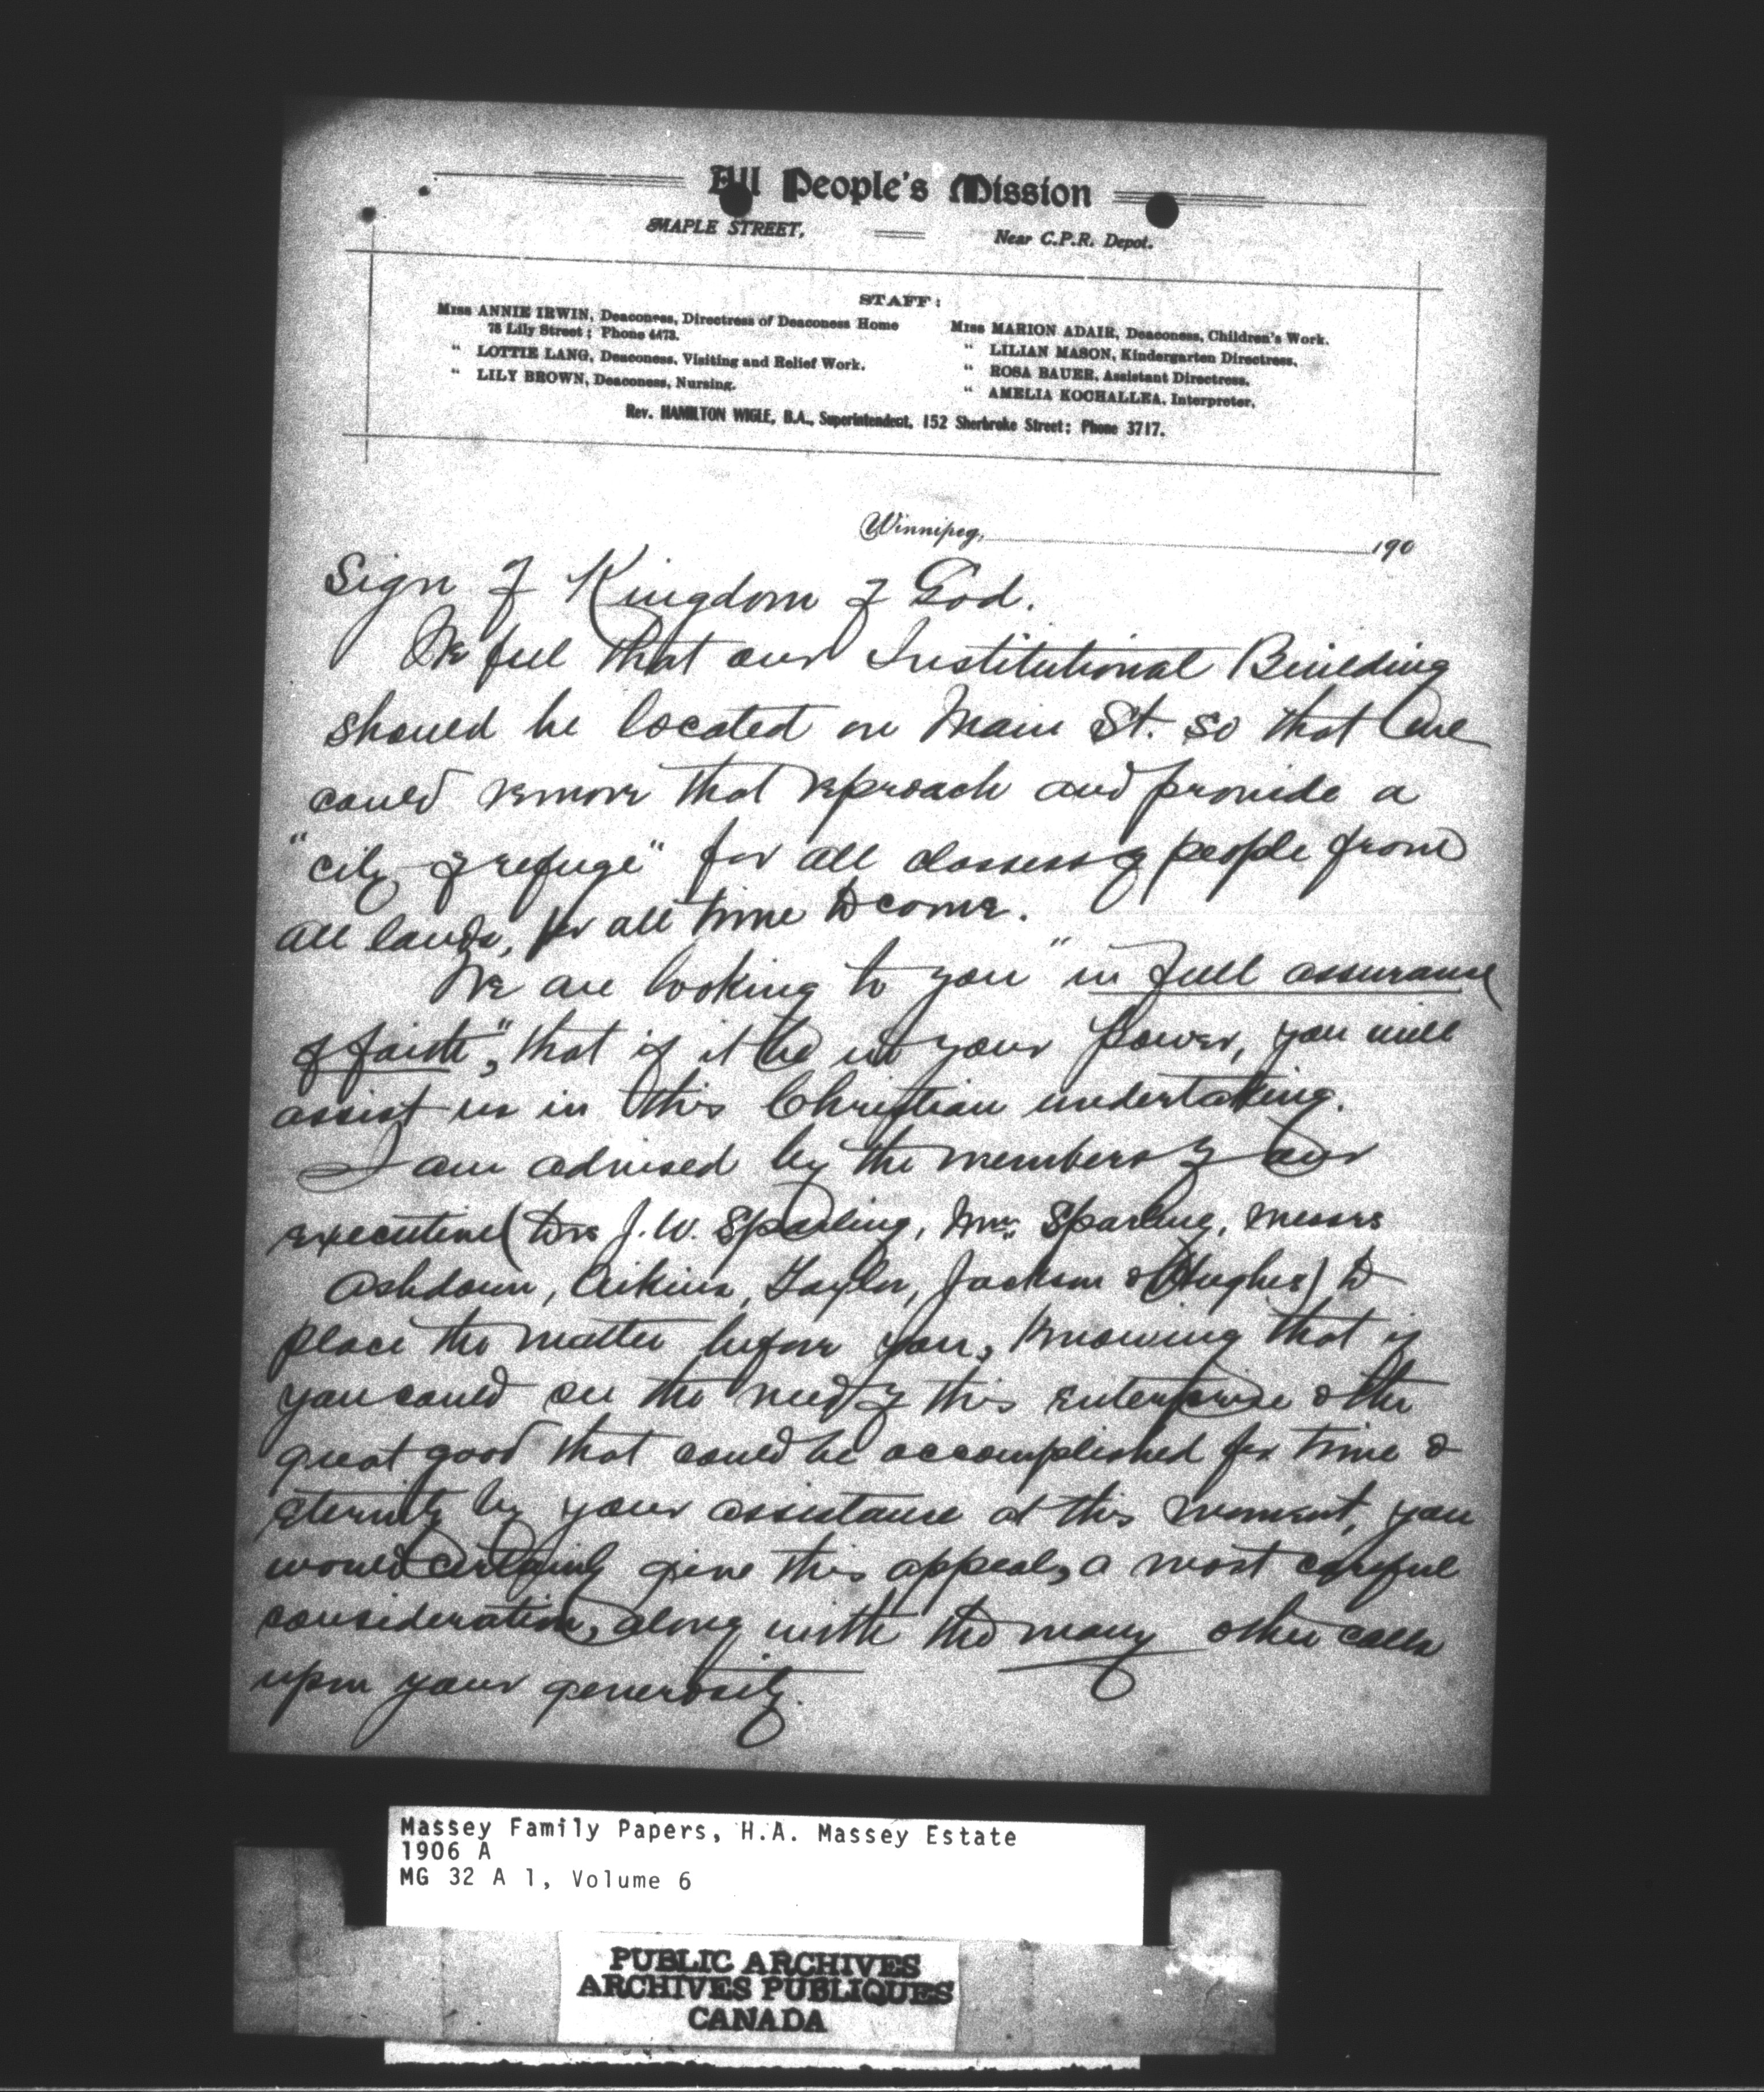 All People's Mission
MAPLE STREET, Near C.P.R. Depot.
STAFF:
Miss ANNIE IRWIN, Deaconess, Directress of Deaconess Home
78 Lily Street; Phone 4473.
" LOTTIE LANG, Deaconess, Visiting and Relief Work.
" LILY BROWN, Deaconess, Nursing.
Miss MARION ADAIR, Deaconess, Children's Work.
" LILIAN MASON, Kindergarten Directress.
" ROSA BAUER, Assistant Directress.
" AMELIA KOCHALLEA, Interpreter.
Rev. HAMILTON WIGLE, B.A., Superintendent, 152 Sherbroke Street; Phone 3717.
Winnipeg, 190
Sign of Kingdom of God.
We feel that our Institutional Building
should be located on Main St. so that we
could remove that reproach and provide a
"city of refuge" for all classes of people from
all lands, for all time to come.
We are looking to you "in full assurance
of faith", that if it be in your power, you will
assist us in this Christian undertaking.
I am advised by the members of our
executive (Drs J.W. Sparling, Wm. Sparling, Messrs
Ashdown, Aikins, Taylor, Jackson & Hughes) to
place the matter before you, knowing that if
you could see the need of this enterprise & the
great good that could be accomplished for time &
eternity by your assistance at this moment, you
would certainly give this appeal, a most careful
consideration, along with the many other calls
upon your generosity.
Massey Family Papers, H.A. Massey Estate
1906 A
MG 32 A 1, Volume 6
PUBLIC ARCHIVES
ARCHIVES PUBLIQUES
CANADA